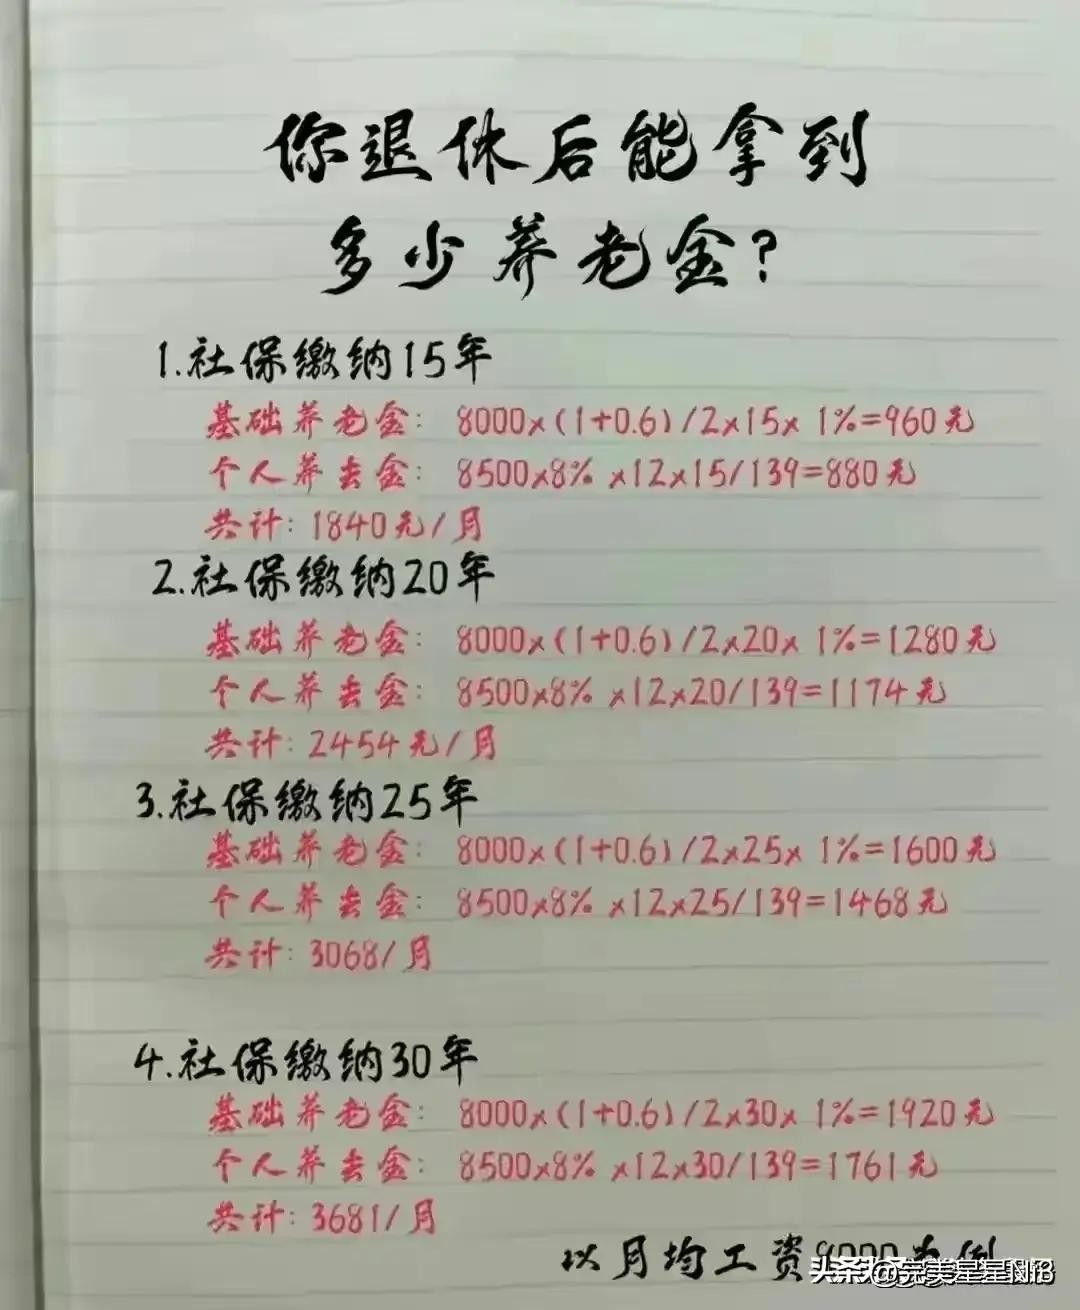 你退休后能拿到
多少养老金?
1.社保缴纳15年
基础养老金: 8000x(1+0.6)/2x15x 1%=960元
个人养老金: 8500x8% x12x15/139=880元
共计: 1840元/月
2.社保缴纳20年
基础养老金: 8000x(1+0.6)/2x20x 1%=1280元
个人养老金: 8500x8% x12x20/139=1174元
共计: 2454元/月
3.社保缴纳25年
基础养老金: 8000x(1+0.6)/2x25x 1%=1600元
个人养老金: 8500x8% x12x25/139=1468元
共计: 3068/月
4.社保缴纳30年
基础养老金: 8000x(1+0.6)/2x30x 1%=1920元
个人养老金: 8500x8% x12x30/139=1761元
共计: 3681/月
以月均工资8000为例
头条 @完美星星